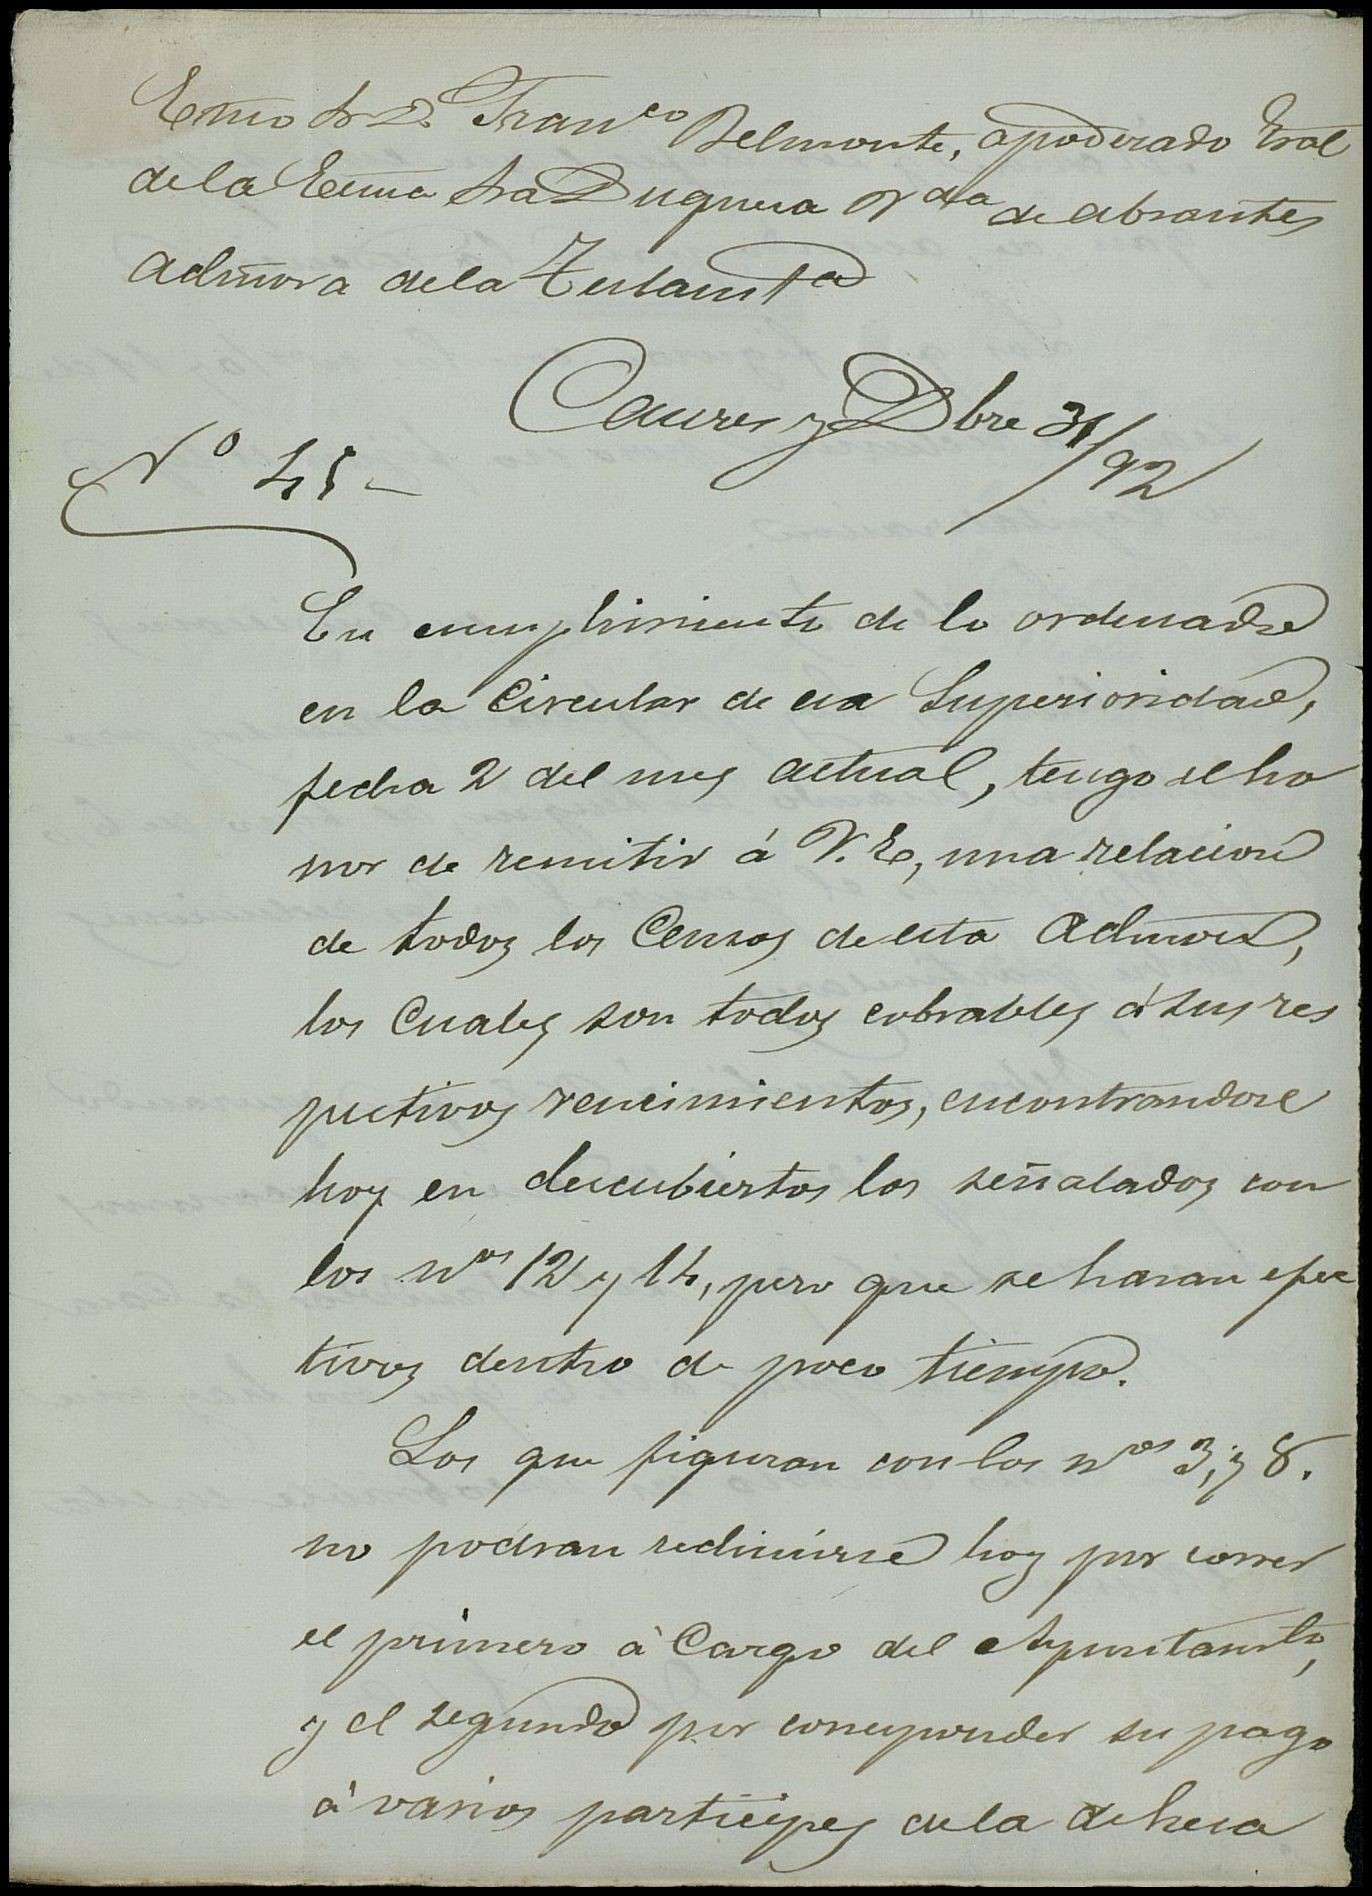 Exmo Sr D. Franco Belmonte, apoderado Gral
de la Exma Sra Duquesa Vda de Abrantes
admora de la Testamta
Caceres y Dbre 31/92
No 45-
En cumplimiento de lo ordenado
en la Circular de esa Superioridad,
fecha 2 del mes actual, tengo el ho
nor de remitir á V.E, una relacion
de todos los Censos de esta Admon,
los Cuales son todos cobrables á sus res
pectivos vencimientos, encontrandose
hoy en descubiertos los señalados con
los nos 12 y 14, pero que se haran efec
tivos dentro de poco tiempo.
Los que figuran con los nros 3, y 8.
no podran redimirse hoy por correr
el primero à Cargo del Ayuntamto,
y el segundo por corresponder su pago
à varios participes de la dehesa